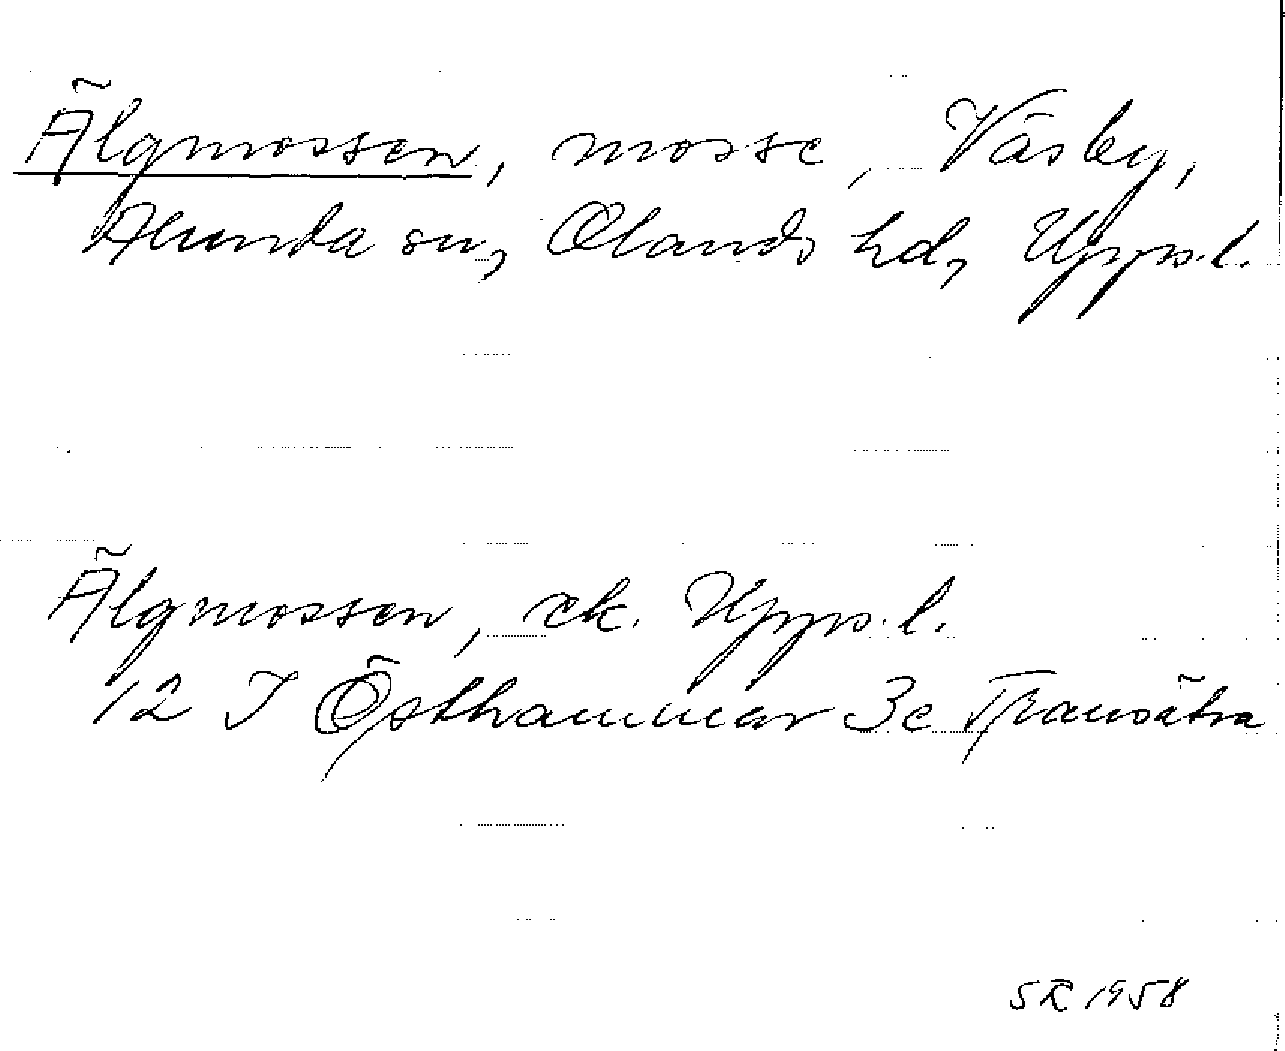 Älgmossen, mosse, Väsby,
Alunda sn, Olands hd, Upps.l.
Älgmossen, ek. Upps.l.
12 I Östhammar 3c Transätra
SR 1958